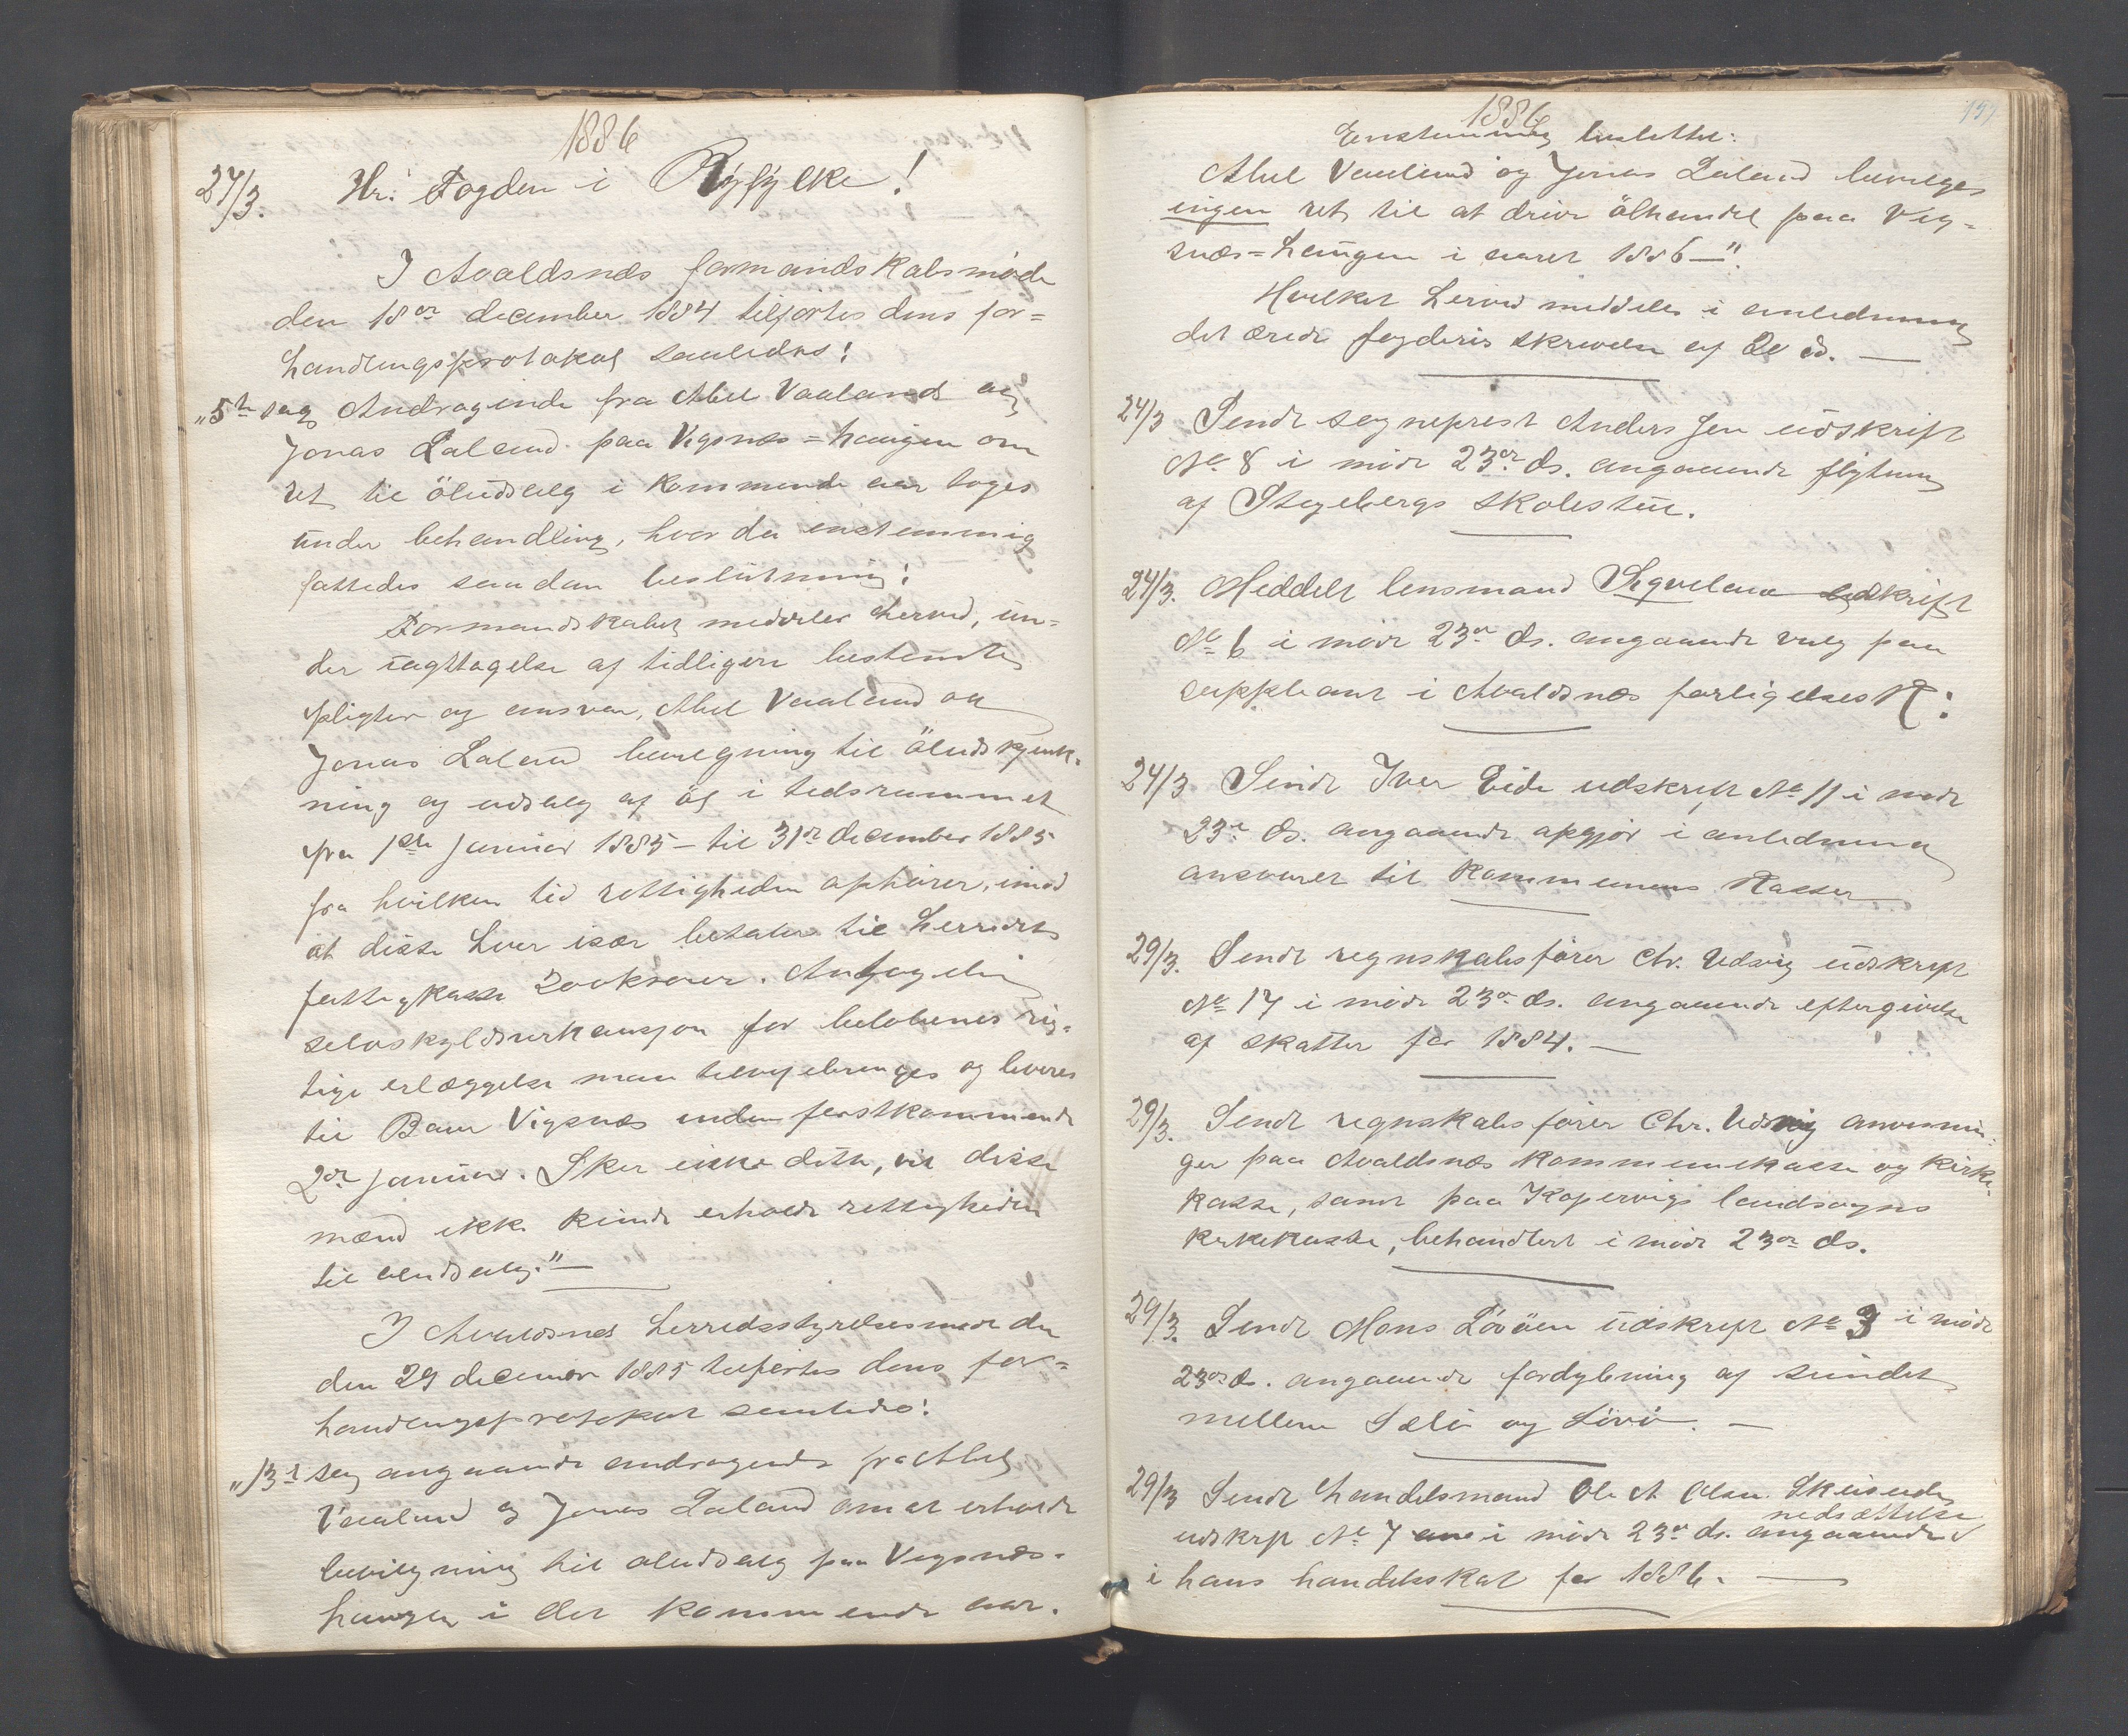 1886
24/3. Hr. Fogden i Ryfylke!
I Avaldsnæs formandskabsmøde
den 18de december 1884 tilførtes dens for=
handlingsprotokol saaledes:
„5te sag Andragende fra Abel Vaaland og
Jonas Laland paa Vigsnæs=haugen om
ret til öludsalg i kommende aar toges
under behandling, hvor da enstemmig
fattedes saadan beslutning:
Formandskabet meddeler herved, un=
der iagttagelse af tidligere bestemte
pligter og ansvar, Abel Vaaland og
Jonas Laland bevilgning til öludskjænk-
ning og udsalg af öl i tidsrummet
fra 1ste januar 1885 – til 31te december 1885
fra hvilken tid rettigheden ophører, imod
at disse hver især betaler til herredets
fattigkasse 200 kroner. Antagelig
selvskyldnerkausjon for beløbenes rig-
tige erlæggelse maa tilveiebringes og leveres
til Baur Vigsnæs inden førstkommende
2den januar. Sker ikke dette, vil disse
mænd ikke kunde erholde rettigheden
til öludsalg." –
I Avaldsnæs herredsstyrelsesmøde den
den 29 december 1885 tilførtes dens for=
handlingsprotokol saaledes:
„13de sag angaaende andragende fra Abel
Vaaland og Jonas Laland om at erholde
bevilgning til öludsalg paa Vigsnæs-
haugen i det kommende aar.
1886
199
Enstemmig besluttet:
Abel Vaaland og Jonas Laland bevilges
ingen ret til at drive ölhandel paa Vig-
snæs=haugen i aaret 1886 –".
Hvilket herved meddeles i anledning
det ærede fogderis skrivelse af 20 ds. –
24/3 Sendt sogneprest Anders Jen udskrift
No 8 i møde 23de ds. angaaende flytning
af Stegebergs skolestue.
24/3. Meddelt lensmand Sqvelana udskrift
No 6 i møde 23de ds. angaaende valg paa
suppleant i Avaldsnæs forligelsesk:
24/3 Sendt Iver Eide udskrift No 11 i møde
23de ds. angaaende opgjør i anledning
ansvaret til kommunens kasser
29/3. Sendt regnskabsfører Chr. Udvig udskrift
No 17 i møde 23de ds. angaaende eftergivelse
af skatter for 1884. –
29/3. Sendt regnskabsfører Chr. Udvig anvisnin-
ger paa Avaldsnæs kommunekasse og kirke-
kasse, samt paa Kopervigs landsogns
kirkekasse, behandlet i møde 23de ds.
29/3. Sendt Mons Løvöen udskrift No 3 i møde
23de ds. angaaende fordybning af sundet
mellem Sælø og Løvø. –
29/3 Sendt handelsmand Ole A Olsen Skeisends
nedsættelse
udskrift No 7 i møde 23de ds. angaaende
i hans handelsskat for 1886. –